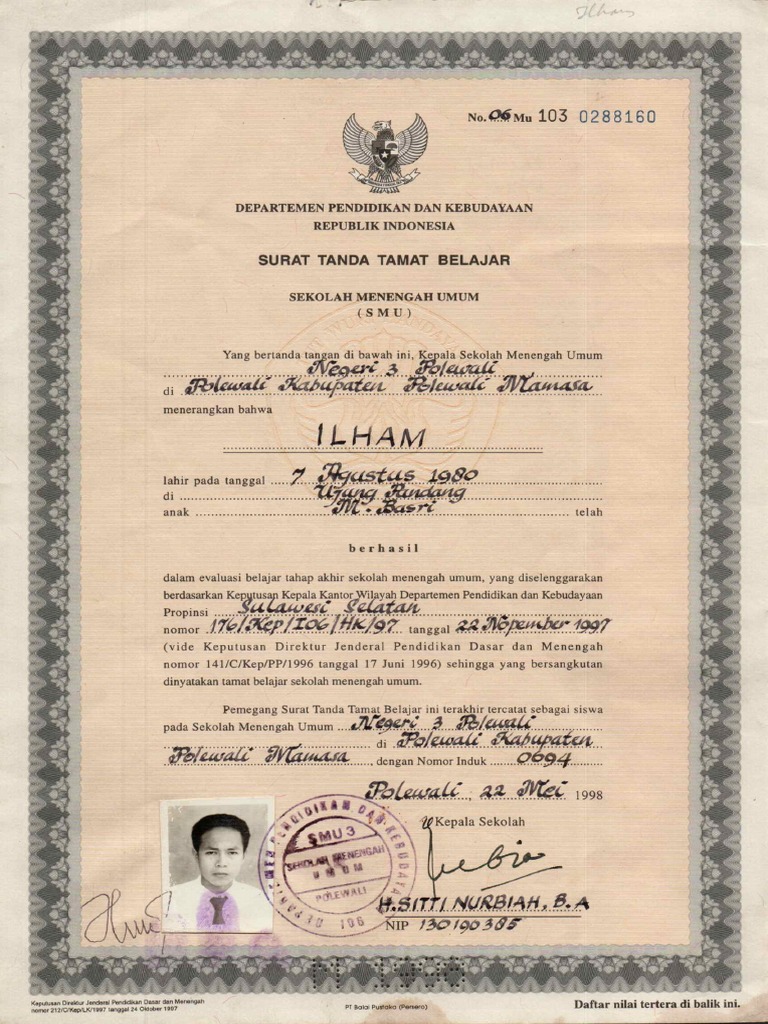 Ilham
No. 06 Mu 103 0288160
DEPARTEMEN PENDIDIKAN DAN KEBUDAYAAN
REPUBLIK INDONESIA
SURAT TANDA TAMAT BELAJAR
SEKOLAH MENENGAH UMUM
( S M U )
Yang bertanda tangan di bawah ini, Kepala Sekolah Menengah Umum
Negeri 3 Polewali
di Polewali Kabupaten Polewali Mamasa
menerangkan bahwa
ILHAM
lahir pada tanggal 7 Agustus 1980
di Ujung Pandang
anak M. Basri telah
berhasil
dalam evaluasi belajar tahap akhir sekolah menengah umum, yang diselenggarakan
berdasarkan Keputusan Kepala Kantor Wilayah Departemen Pendidikan dan Kebudayaan
Propinsi Sulawesi Selatan
nomor 176/Kep/I06/HK/97 tanggal 22 Nopember 1997
(vide Keputusan Direktur Jenderal Pendidikan Dasar dan Menengah
nomor 141/C/Kep/PP/1996 tanggal 17 Juni 1996) sehingga yang bersangkutan
dinyatakan tamat belajar sekolah menengah umum.
Pemegang Surat Tanda Tamat Belajar ini terakhir tercatat sebagai siswa
pada Sekolah Menengah Umum Negeri 3 Polewali
di Polewali Kabupaten
Polewali Mamasa, dengan Nomor Induk 0694
Polewali, 22 Mei 1998
Kepala Sekolah
DEPARTEMEN PENDIDIKAN DAN KEBUDAYAAN
SMU 3
SEKOLAH MENENGAH
UMUM
POLEWALI
106
H. SITTI NURBIAH, B.A
NIP 130190385
Keputusan Direktur Jenderal Pendidikan Dasar dan Menengah
nomor 212/C/Kep/LK/1997 tanggal 24 Oktober 1997
PT Balai Pustaka (Persero)
Daftar nilai tertera di balik ini.